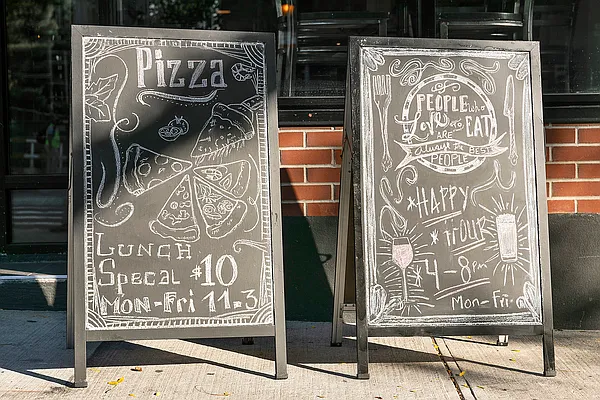 Pizza
LUNCH
Specal $10
Mon-Fri 11-3
PEOPLE who
ARE EAT
Always the BEST
PEOPLE
*HAPPY
*HOUR
*4-8pm
Mon-Fri